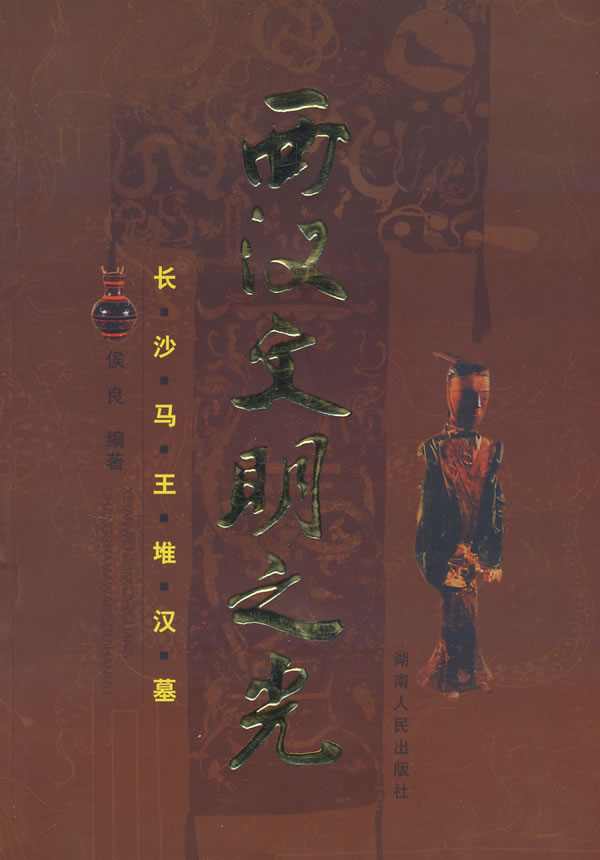 西汉文明之光
长·沙·马·王·堆·汉·墓
侯良 编著
XIHANWENMINGZHIGUANG
CHANGSHAMAWANGDUIHANMU
湖南人民出版社